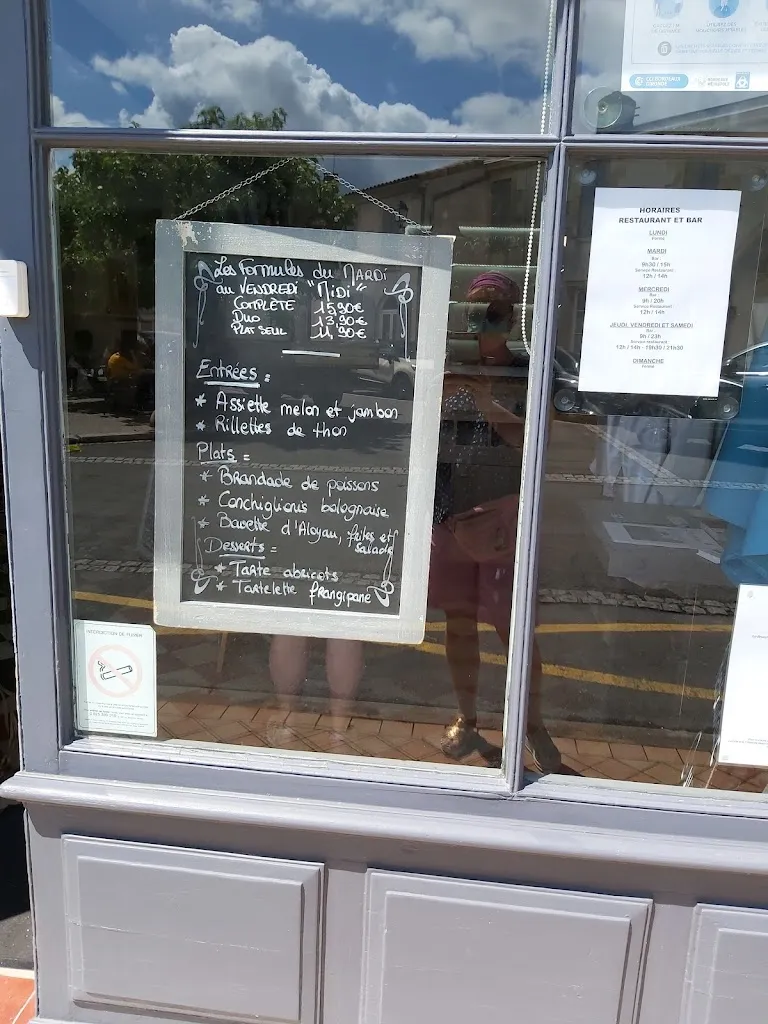 Les Formules du Mardi
au Vendredi "Midi"
Complète 15,90€
Duo 13,90€
Plat seul 11,90€
Entrées :
* Assiette melon et jambon
* Rillettes de thon
Plats :
* Brandade de poissons
* Conchiglionis bolognaise
* Bavette d'Aloyau, frites et
salade
Desserts :
* Tarte abricots
* Tartelette frangipane
INTERDICTION DE FUMER
HORAIRES
RESTAURANT ET BAR
LUNDI
Fermé
MARDI
Bar :
9h30 / 15h
Service Restaurant
12h / 14h
MERCREDI
Bar :
9h / 20h
Service Restaurant
12h / 14h
JEUDI, VENDREDI ET SAMEDI
Bar :
9h / 23h
Service restaurant
12h / 14h - 19h30 / 21h30
DIMANCHE
Fermé